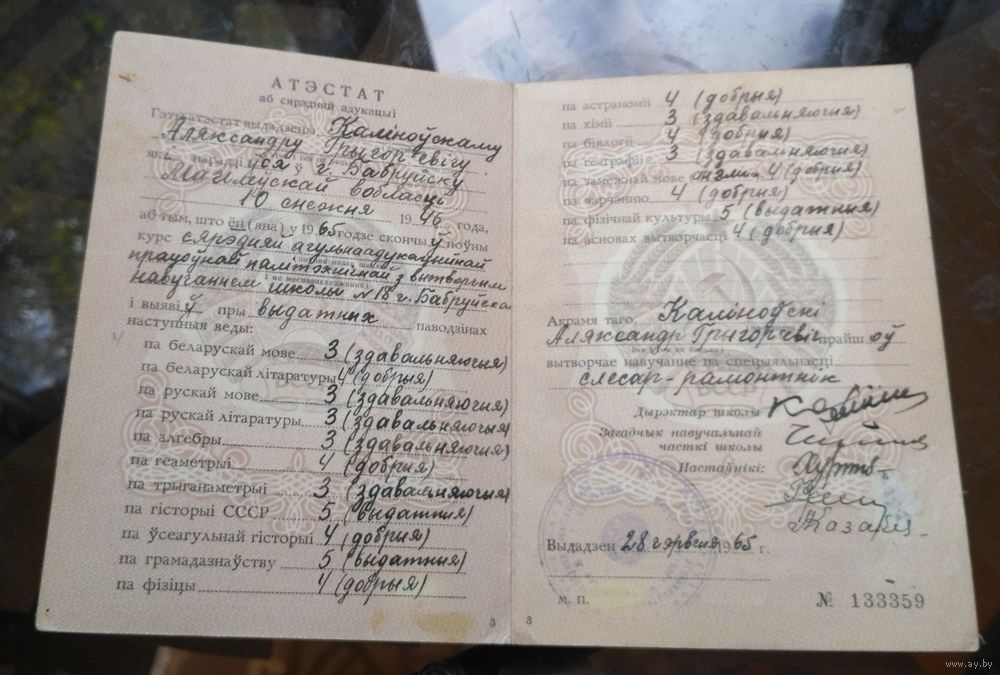 АТЭСТАТ
аб сярэдняй адукацыі
Гэты атэстат выдадзены Каліноўскаму
Аляксандру Грыгор'евічу
які нарадзіўся ў г. Бабруйску
Магілеўскай вобласці
10 снежня 1946 года,
аб тым, што ён (яна) у 1965 годзе скончыў поўны
курс сярэдняй агульнаадукацыйнай
працоўнай палітэхнічнай з вытворчым
навучаннем школы №18 г. Бабруйска
і выявіў пры выдатных паводзінах
наступныя веды:
па беларускай мове 3 (здавальняючыя)
па беларускай літаратуры 4 (добрыя)
па рускай мове 3 (здавальняючыя)
па рускай літаратуры 3 (здавальняючыя)
па алгебры 3 (здавальняючыя)
па геаметрыі 4 (добрыя)
па трыганаметрыі 3 (здавальняючыя)
па гісторыі СССР 5 (выдатныя)
па ўсеагульнай гісторыі 4 (добрыя)
па грамадазнаўству 5 (выдатныя)
па фізіцы 4 (добрыя)
3
па астраноміі 4 (добрыя)
па хіміі 3 (здавальняючыя)
па біялогіі 4 (добрыя)
па геаграфіі 3 (здавальняючыя)
па замежнай мове 4 (добрыя)
па чарчэнню 4 (добрыя)
па фізічнай культуры 5 (выдатныя)
па асновах вытворчасці 4 (добрыя)
Акрамя таго, Каліноўскі
Аляксандр Грыгор'евіч прайшоў
вытворчае навучанне па спецыяльнасці
слесар-рамонтнік
БССР
Дырэктар школы
Загадчык навучальнай
часткі школы
Настаўнікі:
Выдадзен 28 чэрвеня 1965 г.
М. П.
№ 133359
3
www.ay.by